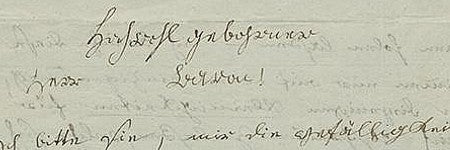 Hochwohl gebohrner
Herr Baron!
ich bitte Sie, mir die Gefälligkeit